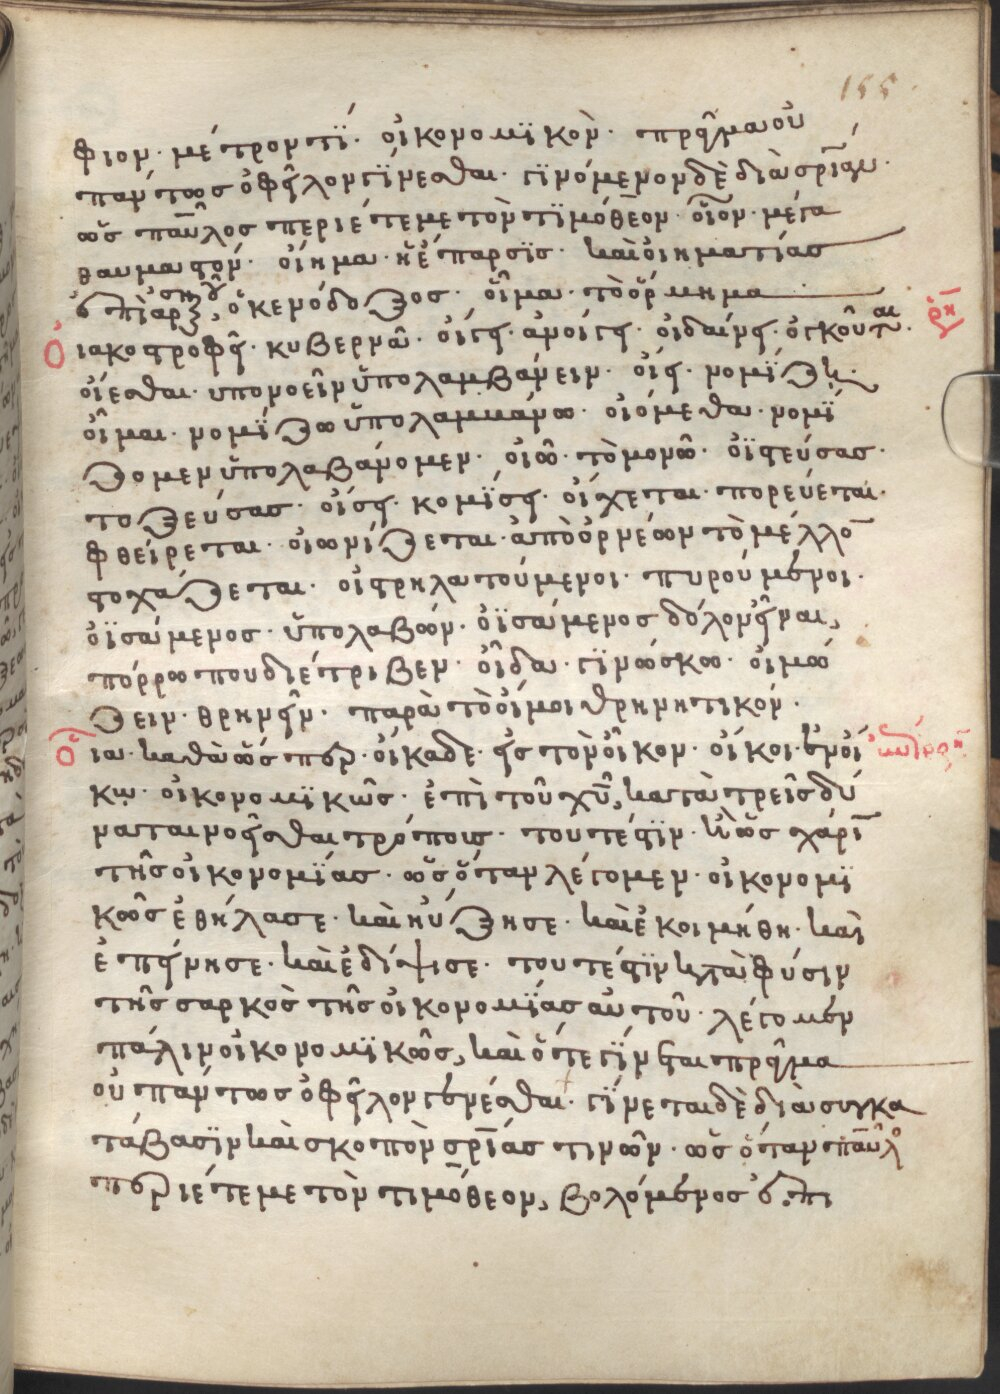 155
φιον· μέτρον τί· οἰκονομϊκὸν· πρᾶγμα οὐ
πάντως ὀφεῖλον γίνεσθαι· γινόμενον δὲ διὰ σρίαν·
ὡς παῦλος περιέτεμε τὸν τϊμόθεον· οἷον· μέγα
θαυμαστόν· οἴημα· ἢ ἔπαρσϊς· καὶ οἰηματίας
ὁ κενόδοξος· οἶμα· τὸ ὅρμημα
ιακοστροφεῖ· κυβερνᾶ· οἰδαίνει·
οἴεσθαι· υπονοεῖν ὕπολαμβάνειν· οἴει· νομίζει·
οἶμαι· νομίζω ὕπολαμμάνω· οἰόμεθα· νομΐ
ζομεν ὕπολαβάνομεν· οἰῶ· τὸ μονῶ· οἰστεύσας·
τοξεύσας· οἴσει· κομΐσει· οἴχεται· πορεύεται·
φθείρεται· οἰωνίζεται· ἀπὸ ὀρνέων τὸ μέλλον
στοχάζεται· οἰστρηλατούμενοι· πυρούμενοι·
οἰσάμενος· ὕπολαβών· οἰσάμενος δόλον εἶναι,
πόρρω που διέτριβεν· οἶδα· γϊνώσκω· οἰμώ
ζειν· θρηνεῖν· παρὰ τὸ οἴμοι θρηνητικόν·
ια· καθὰ ὡς περ· οἴκαδε· εἰς τὸν οἶκον· οἴκοι· ἐν οἴ
κω· οἰκονομϊκῶς· ἐπὶ τοῦ χυ, κατὰ τρεῖς δύ
ναται νοεῖσθαι τρόποις· τουτέστϊν· ἢ ὡς χάριν
τῆς οἰκονομΐας· ὡς ὅταν λέγομεν· οἰκονομϊ
κῶς ἐθήλασε· καὶ ηὔξησε· καὶ ἐκοιμήθη· καὶ
ἐπείνησε· καὶ ἐδίψισε· τουτέστϊν κατὰ φύσιν
τῆς σαρκὸς τῆς οἰκονομΐας αὐτοῦ· λέγομεν
πάλιν οἰκονομϊκῶς, καὶ ὅτε γΐνεται πρᾶγμα
οὐ πάντως ὀφεῖλον γενέσθαι· γίνεται δὲ διὰ συγκα
τάβασϊν καὶ σκοπὸν σρίας τινῶν· ὡς ὅταν παῦλος
περιέτεμε τὸν τιμόθεον, βολόμενος